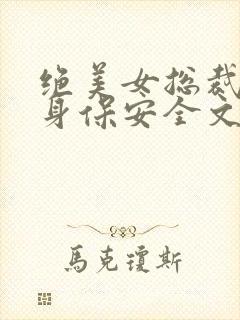 绝美女总裁
身保安全文
馬克瓊斯